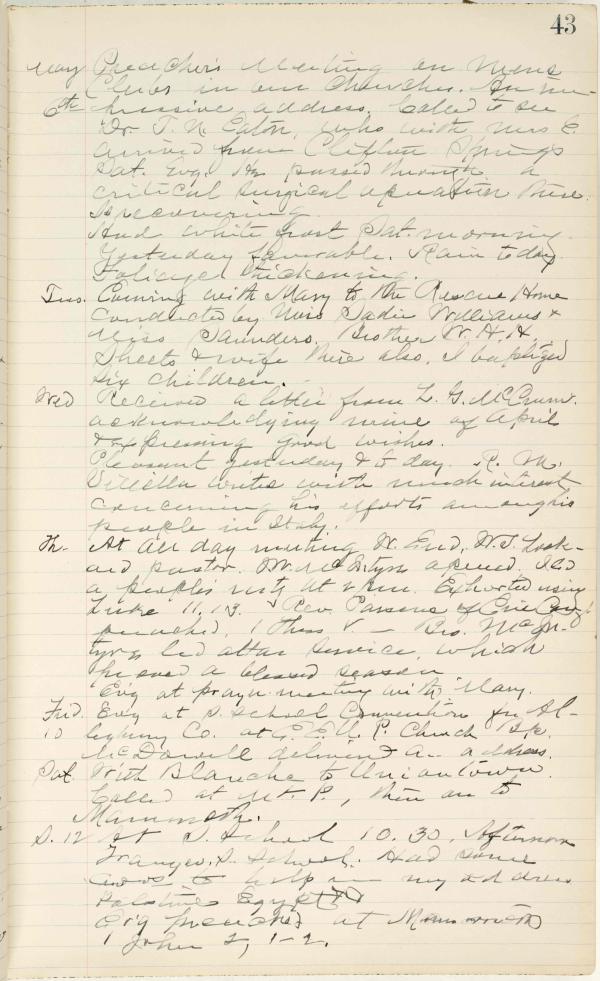 43
May Preachers Meeting on Mens
Clubs in our Churches. An im-
6th pressive address. Called to see
Dr. T. N. Eaton, who with Mrs E.
arrived from Clifton Springs
Sat. Evg. He passed through a
critical surgical operation there.
Is recovering.
Had white frost Sat. morning.
Yesterday favorable. Rain today
Foliage thickening.
Tues. Evening with Mary to the Rescue Home
conducted by Miss Sadie Williams &
Miss Saunders. Brother W. H. H.
Sheets & wife there also. I baptized
six children.
Wed Received a letter from L. G. McCrum.
acknowledging mine of April
& expressing good wishes.
Pleasant yesterday & to day. R. M.
writes with much interest
concerning his efforts among his
people in Italy.
Th. At All day meeting W. End, W. S. Lock-
ard pastor. W. McIntyre opened. Led
a people's mtg at Exhorted using
Luke 11, 13. Rev. Parsons of Erie
preached, 1 Thess V. — Bro. McIn-
tyre led altar service, which
proved a blessed season
Evg at prayer meeting with Mary.
Frid. Evg at S. School Convention for Al-
10 legheny Co. at U. P. Church
McDowell delivered an address.
Sat. With Blanche to Uniontown.
Called at Mt. P., then on to
Mammoth.
S. 12 At S. School 10.30. Afternoon
Grange S. School. Had some
to help in my address
Palestine Egypt
Evg preached at Mammoth
1 John 2, 1-2.